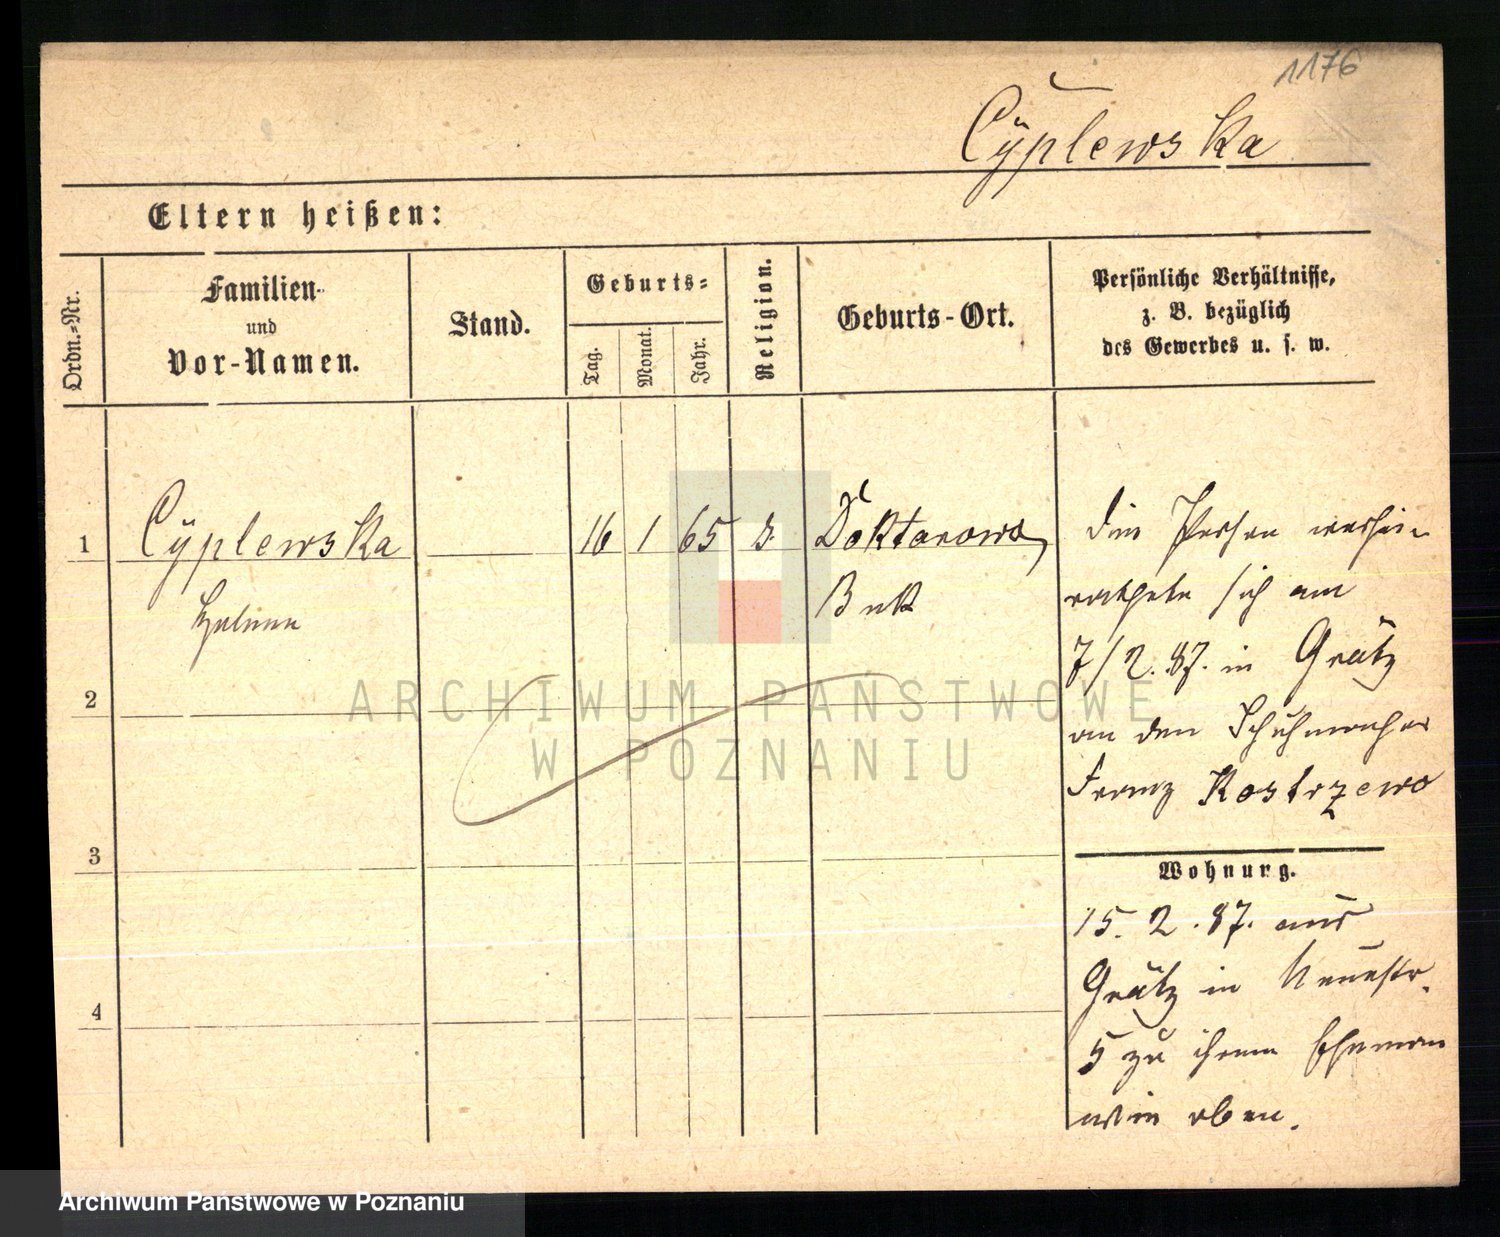 1176
Cÿplewska
Eltern heißen:
Ordn.-Nr.
Familien-
und
Vor-Namen.
Stand.
Geburts-
Tag.
Monat.
Jahr.
Religion.
Geburts-Ort.
Persönliche Verhältnisse,
z. B. bezüglich
des Gewerbes u. s. w.
1
Cÿplewska
16
1
65
Doktorowo
Helene
Buk
die Person verhei-
rathete sich am
7/2.87. in Grätz
an den Schuhmacher
Franz Kostrzewa
2
3
4
Wohnung.
15.2.87. aus
Grätz in Neuestr.
5 zu ihrem Eheman
wie oben.
ARCHIWUM PAŃSTWOWE
W POZNANIU
Archiwum Państwowe w Poznaniu